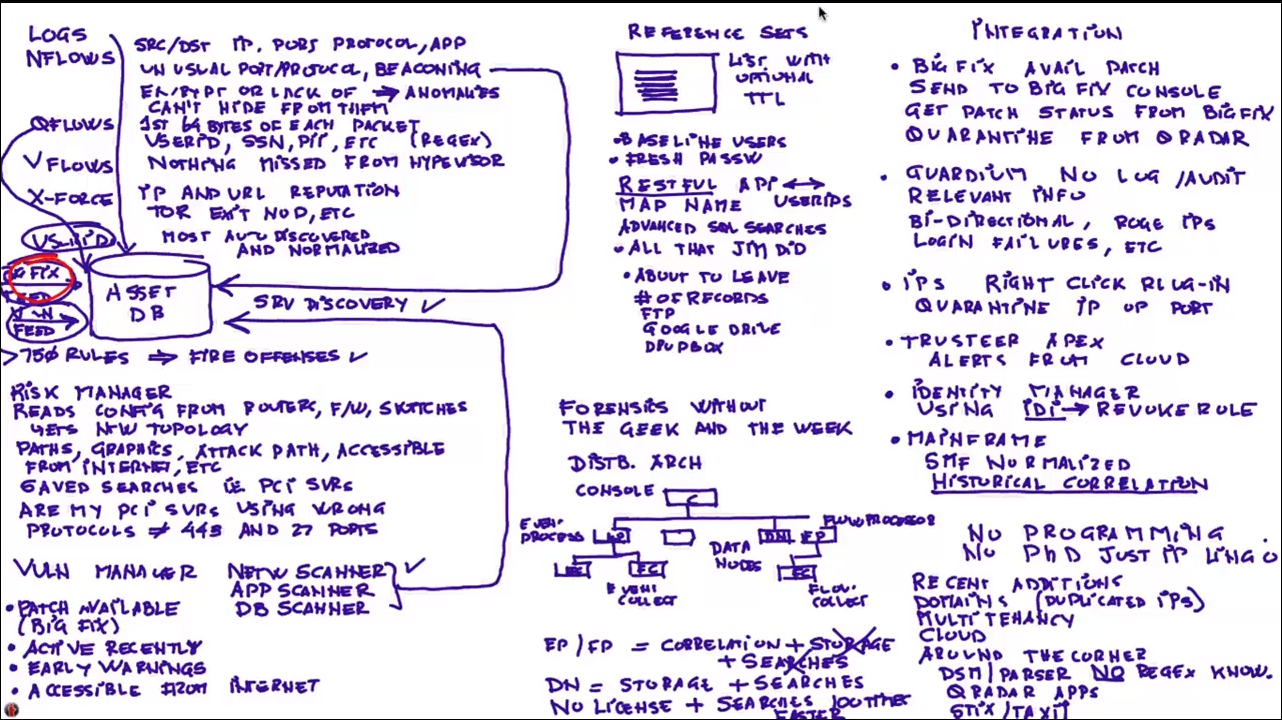 LOGS
NFLOWS
SRC/DST IP, PORS PROTOCOL, APP
UNUSUAL PORT/PROTOCOL, BEACONING
EN/RYPT OR LACK OF → ANOMALIES
CAN'T HIDE FROM THEM
QFLOWS
1ST 64 BYTES OF EACH PACKET
USERID, SSN, PII, ETC (REGEX)
VFLOWS
NOTHING MISSED FROM HYPEVISOR
X-FORCE
IP AND URL REPUTATION
TOR EXIT NOD, ETC
MOST AUTO DISCOVERED
AND NORMALIZED
FIX
FEED
ASSET
DB
SRV DISCOVERY ✓
>750 RULES ⇒ FIRE OFFENSES ✓
RISK MANAGER
READS CONFIG FROM ROUTERS, F/W, SWITCHES
GETS NEW TOPOLOGY
PATHS, GRAPHICS, ATTACK PATH, ACCESSIBLE
FROM INTERNET, ETC
SAVED SEARCHES i.E. PCI SVRS
ARE MY PCI SVRS USING WRONG
PROTOCOLS ≠ 443 AND 27 PORTS
VULN MANAGER
NETW SCANNER ✓
APP SCANNER
DB SCANNER
• PATCH AVAILABLE
(BIG FIX)
• ACTIVE RECENTLY
• EARLY WARNINGS
• ACCESSIBLE FROM INTERNET
REFERENCE SETS
LIST WITH
OPTIONAL
TTL
• BASELINE USERS
• FRESH PASSW
RESTFUL API ↔
MAP NAME USERIDS
ADVANCED SQL SEARCHES
• ALL THAT JIM DID
• ABOUT TO LEAVE
# OF RECORDS
FTP
GOOGLE DRIVE
DROPBOX
FORENSICS WITHOUT
THE GEEK AND THE WEEK
DISTB. ARCH
CONSOLE
C
EVENT
PROCESS
FLOW PROCESSOR
DN
FP
DATA
NODES
EC
EC
EVENT
COLLECT
FLOW
COLLECT
EP/FP = CORRELATION + STORAGE
+ SEARCHES
DN = STORAGE + SEARCHES
NO LICENSE + SEARCHES
FASTER
INTEGRATION
• BIGFIX AVAIL PATCH
SEND TO BIG FIX CONSOLE
GET PATCH STATUS FROM BIGFIX
QUARANTINE FROM QRADAR
• GUARDIUM NO LOG/AUDIT
RELEVANT INFO
BI-DIRECTIONAL, ROGE IPS
LOGIN FAILURES, ETC
• IPS RIGHT CLICK PLUG-IN
QUARANTINE IP OP PORT
• TRUSTEER APEX
ALERTS FROM CLOUD
• IDENTITY MANAGER
USING IDI → REVOKE RULE
• MAINFRAME
SMF NORMALIZED
HISTORICAL CORRELATION
NO PROGRAMMING
NO PhD JUST IP LINGO
RECENT ADDITIONS
DOMAINS (DUPLICATED IPS)
MULTITENANCY
CLOUD
AROUND THE CORNER
DSM/PARSER NO REGEX KNOW.
QRADAR APPS
STIX/TAXII